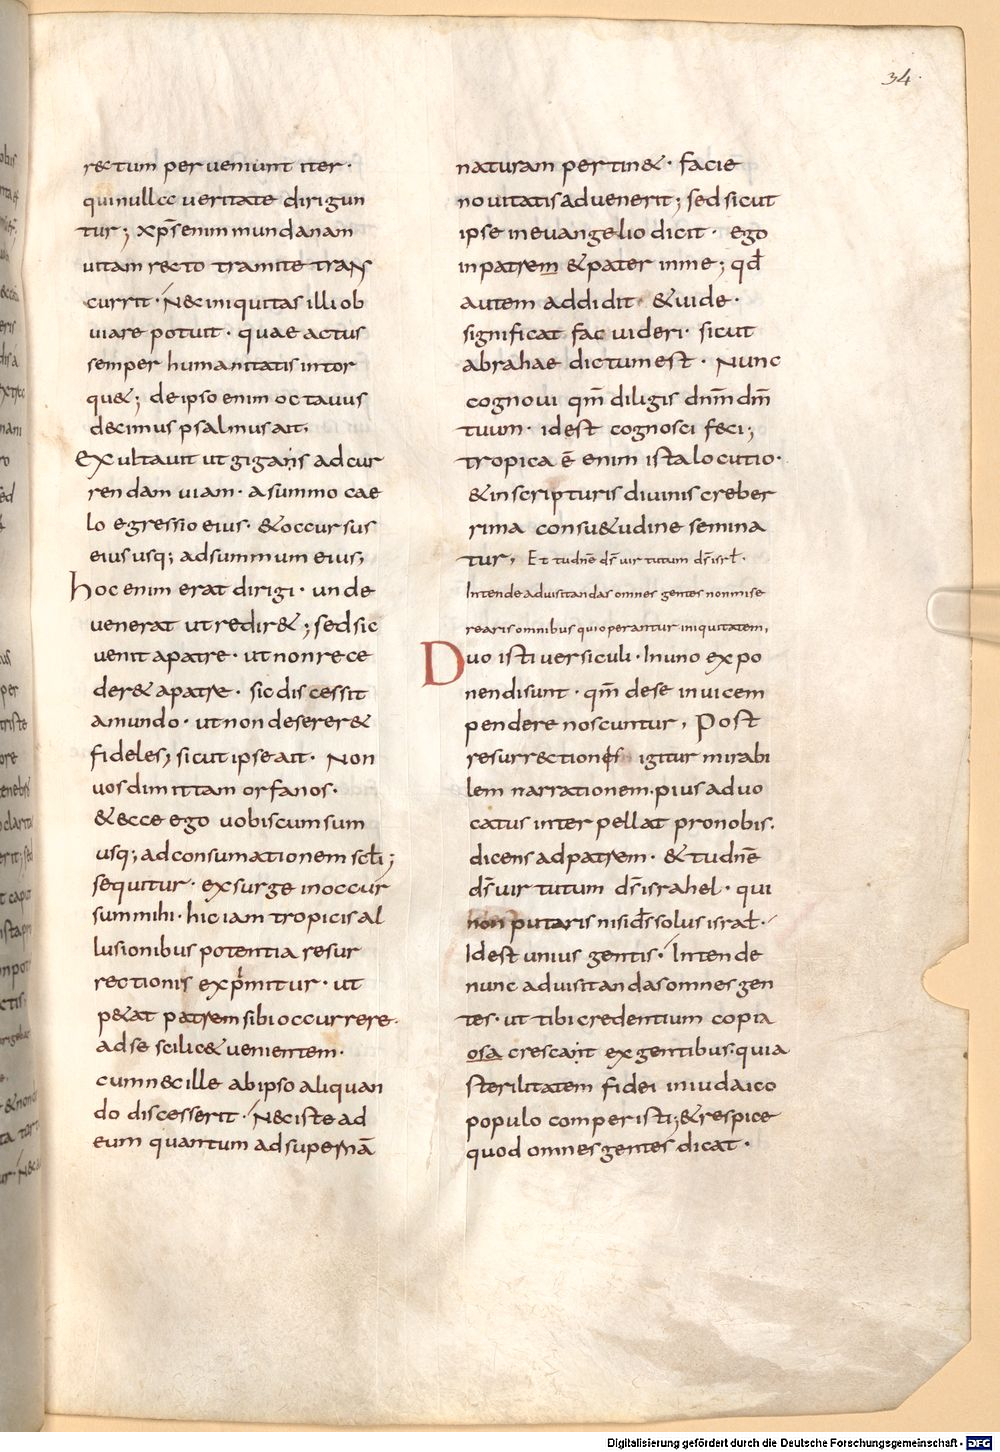 34.
rectum perveniunt iter·
qui nulla veritate dirigun
tur; xp̄s enim mundanam
uitam recto tramite trans
currit· Nec iniquitas illi ob
uiare potuit· quae actus
semper humanitatis intor
qu&; de ipso enim octauus
decimus psalmus ait,
Exultauit ut gigans ad cur
rendam uiam· a summo cae
lo egressio eius· &occursus
eius usq; ad summum eius,
hoc enim erat dirigi· unde
uenerat ut redir&; sed sic
uenit a patre· ut non rece
der& a patre· sic discessit
a mundo· ut non deserer&
fideles; sicut ipse ait· Non
uos dimittam orfanos·
&ecce ego uobiscum sum
usq; ad consumationem scl̄i;
sequitur· exsurge in occur
sum mihi· hic iam tropicis al
lusionibus potentia resur
rectionis exprimitur· ut
p&at patrem sibi occurrere·
ad se scilic& uenientem·
cum nec ille ab ipso aliquan
do discesserit· Nec iste ad
eum quantum ad supernā
naturam pertin&· facie
nouitatis aduenerit; sed sicut
ipse in euangelio dicit· ego
in patrem &pater in me; qd̄
autem addidit· &uide·
significat fac uideri· sicut
abrahae dictum est· Nunc
cognoui qm̄ diligis dnm̄ dm̄
tuum· id est cognosci feci;
tropica ē enim ista locutio·
&in scripturis diuinis creber
rima consu&udine semina
tur, Et tu dnē ds̄ uirtutum ds̄ isrl̄·
Intende ad uisitandas omnes gentes non mise
rearis omnibus qui operantur iniquitatem,
Duo isti uersiculi· In uno expo
nendi sunt· qm̄ de se inuicem
pendere noscuntur, Post
resurrectionis igitur mirabi
lem narrationem· pius aduo
catus interpellat pro nobis.
dicens ad patrem· & tu dnē
ds̄ uirtutum ds̄ israhel· qui
non putaris nisi ds̄ solus isral̄·
Id est unius gentis· Intende
nunc ad uisitandas omnes gen
tes· ut tibi credentium copia
osa crescant ex gentibus· quia
sterilitatem fidei in iudaico
populo comperisti; &respice
quod omnes gentes dicat·
Digitalisierung gefördert durch die Deutsche Forschungsgemeinschaft - DFG